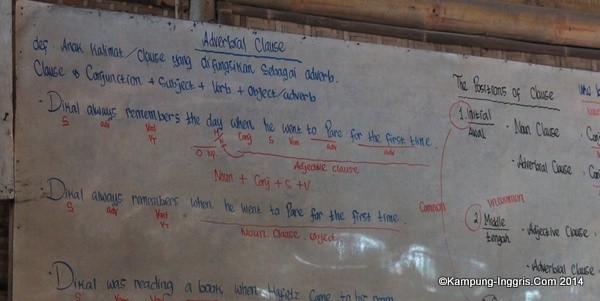 Adverbial Clause
def. Anak kalimat / clause yang difungsikan sebagai adverb.
Clause Conjunction + Subject + Verb + Object/adverb
· Dikal always remembers the day when he went to Pare for the first time.
S adv Verb Conj S Verb adv adv
Adjective clause
Noun + Conj + S + V
· Dikal always remembers when he went to Pare for the first time.
S adv Verb
Noun Clause object
· Dikal was reading a book when Came to his room
The Positions of Clause
1. Initial
Awal
- Noun Clause
- Adverbial Clause
Common
uncommon
2) Middle
tengah
- Adjective Clause
- Adverbial Clause
©Kampung-Inggris.Com 2014